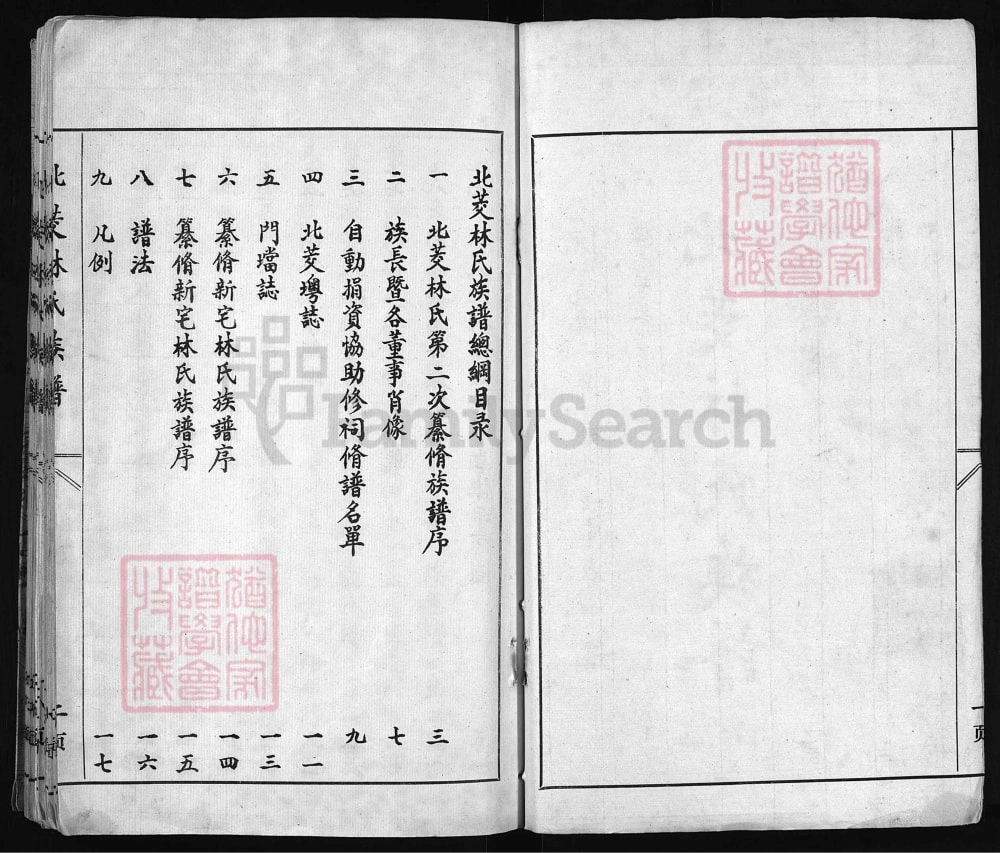 一页
猶他家
譜學會
收藏
北茭林氏族譜總綱目录
一 北茭林氏第二次纂脩族譜序 三
二 族長暨各董事肖像 七
三 自動捐資協助修祠脩譜名單 九
四 北茭墺誌 一二
五 門墻誌 一三
六 纂脩新宅林氏族譜序 一四
七 纂脩新宅林氏族譜序 一五
八 譜法 一六
九 凡例 一七
北茭林氏族譜
二页
猶他家
譜學會
收藏
FamilySearch